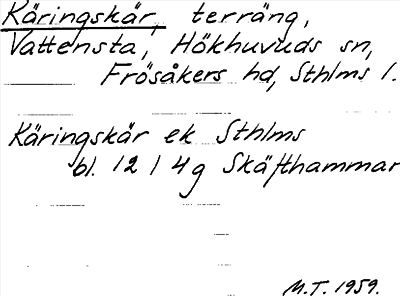 Käringskär, terräng,
Vattensta, Hökhuvuds sn,
Frösåkers hd, Sthlms l.
Käringskär ek Sthlms
bl. 12 I 4g Skäfthammar
M.T. 1959.